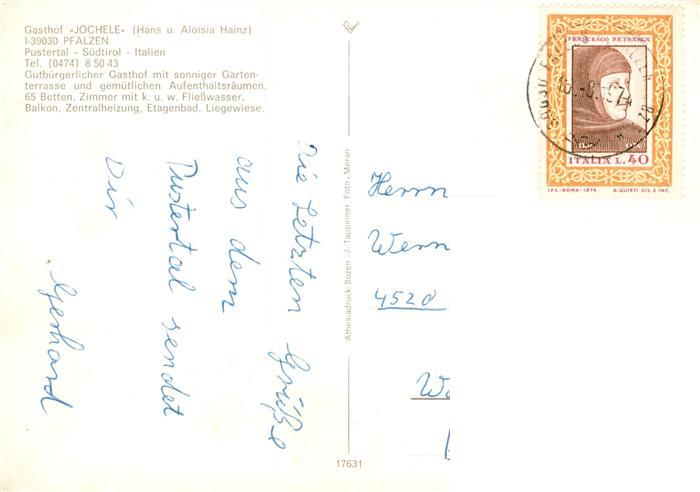 Gasthof «JOCHELE» (Hans u. Aloisia Hainz)
I-39030 PFALZEN
Pustertal - Südtirol - Italien
Tel. (0474) 8 50 43
Gutbürgerlicher Gasthof mit sonniger Garten-
terrasse und gemütlichen Aufenthaltsräumen,
65 Betten, Zimmer mit k. u. w. Fließwasser,
Balkon, Zentralheizung, Etagenbad, Liegewiese.
Die Letzten Grüße
aus dem
Pustertal sendet
Dir
Gerhard
Athesiadruck Bozen - J. Tappeiner Foto, Meran
17631
Herrn
Wern
4520
FRANCESCO PETRARCA
ITALIA L. 40
I.P.S. - ROMA - 1974